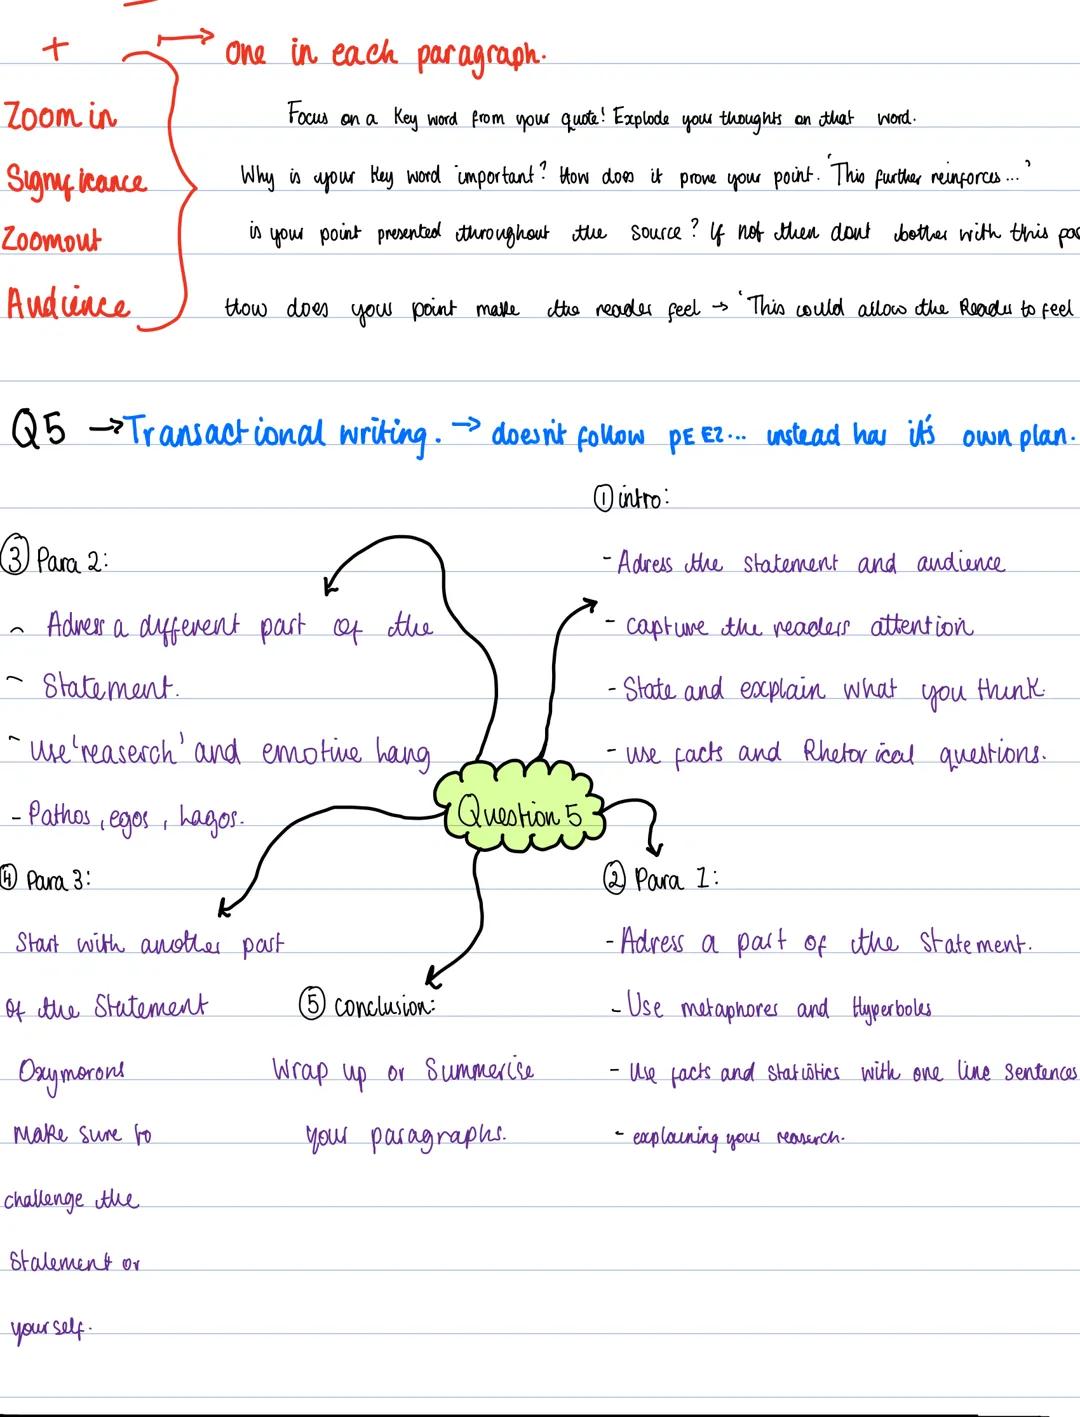 + → One in each paragraph.
Zoom in Focus on a Key word from your quote! Explode your thoughts on that word.
Significance Why is your Key word important? How does it prove your point. 'This further reinforces...'
Zoomout is your point presented throughout the source? If not then dont bother with this
Audience How does your point make the reader feel → 'This could allow the Reader to feel
Q5 → Transactional writing. → doesn't follow PEEZ... instead has it's own plan.
① intro:
- Adress the statement and audience
- capture the readers attention
- State and explain what you think.
- use facts and Rhetorical questions.
③ Para 2:
- Adress a different part of the
- Statement.
- Use 'reaserch' and emotive lang
- Pathos, egos, lagos.
Question 5
② Para 1:
- Adress a part of the Statement.
- Use metaphores and Hyperboles
- Use facts and statistics with one line sentences
- explaining your reaserch.
④ Para 3:
Start with another part
Of the Statement
Oxymorons
Make sure to
challenge the
Statement or
yourself.
⑤ conclusion:
Wrap up or Summerise
your paragraphs.